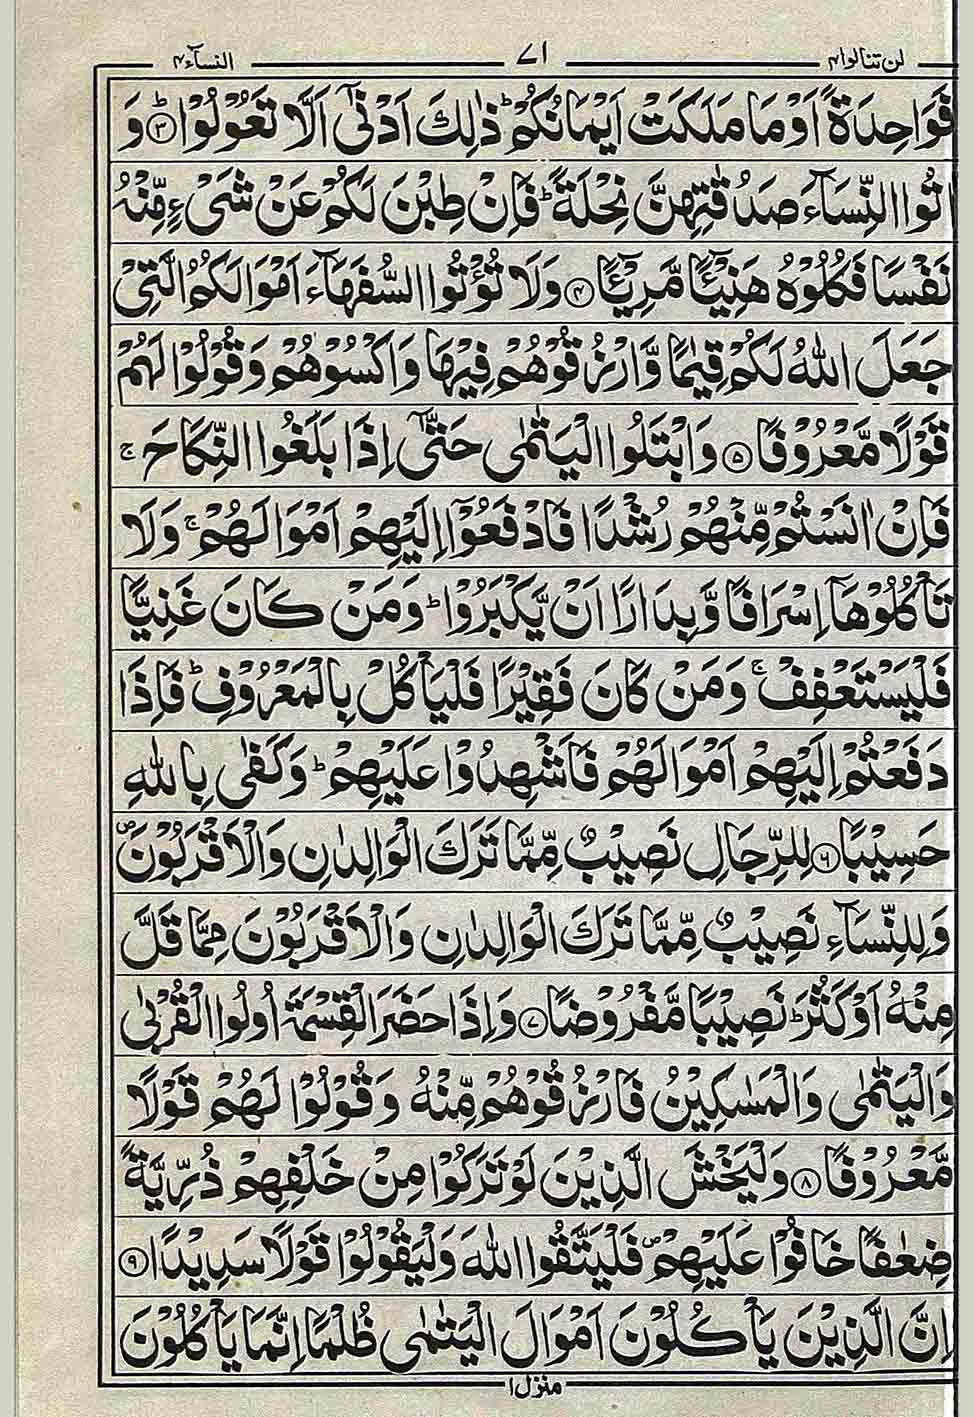 لن تنالوا۴ ۷۱ النسآء۴
فَوَاحِدَةً اَوْ مَا مَلَكَتْ اَيْمَانُكُمْ ؕ ذٰلِكَ اَدْنٰۤى اَلَّا تَعُوْلُوْا ؕ﴿۳﴾ وَ
اٰتُوا النِّسَآءَ صَدُقٰتِهِنَّ نِحْلَةً ؕ فَاِنْ طِبْنَ لَكُمْ عَنْ شَىْءٍ مِّنْهُ
نَفْسًا فَكُلُوْهُ هَنِيْٓـًٔا مَّرِيْٓـًٔا ﴿۴﴾ وَلَا تُؤْتُوا السُّفَهَآءَ اَمْوَالَكُمُ الَّتِىْ
جَعَلَ اللّٰهُ لَكُمْ قِيٰمًا وَّارْزُقُوْهُمْ فِيْهَا وَاكْسُوْهُمْ وَقُوْلُوْا لَهُمْ
قَوْلًا مَّعْرُوْفًا ﴿۵﴾ وَابْتَلُوا الْيَتٰمٰى حَتّٰۤى اِذَا بَلَغُوا النِّكَاحَ ۚ
فَاِنْ اٰنَسْتُمْ مِّنْهُمْ رُشْدًا فَادْفَعُوْۤا اِلَيْهِمْ اَمْوَالَهُمْ ۚ وَلَا
تَاْكُلُوْهَاۤ اِسْرَافًا وَّبِدَارًا اَنْ يَّكْبَرُوْا ؕ وَمَنْ كَانَ غَنِيًّا
فَلْيَسْتَعْفِفْ ۚ وَمَنْ كَانَ فَقِيْرًا فَلْيَاْكُلْ بِالْمَعْرُوْفِ ؕ فَاِذَا
دَفَعْتُمْ اِلَيْهِمْ اَمْوَالَهُمْ فَاَشْهِدُوْا عَلَيْهِمْ ؕ وَكَفٰى بِاللّٰهِ
حَسِيْبًا ﴿۶﴾ لِلرِّجَالِ نَصِيْبٌ مِّمَّا تَرَكَ الْوَالِدٰنِ وَالْاَقْرَبُوْنَ ۪
وَلِلنِّسَآءِ نَصِيْبٌ مِّمَّا تَرَكَ الْوَالِدٰنِ وَالْاَقْرَبُوْنَ مِمَّا قَلَّ
مِنْهُ اَوْ كَثُرَ ؕ نَصِيْبًا مَّفْرُوْضًا ﴿۷﴾ وَاِذَا حَضَرَ الْقِسْمَةَ اُولُوا الْقُرْبٰى
وَالْيَتٰمٰى وَالْمَسٰكِيْنُ فَارْزُقُوْهُمْ مِّنْهُ وَقُوْلُوْا لَهُمْ قَوْلًا
مَّعْرُوْفًا ﴿۸﴾ وَلْيَخْشَ الَّذِيْنَ لَوْ تَرَكُوْا مِنْ خَلْفِهِمْ ذُرِّيَّةً
ضِعٰفًا خَافُوْا عَلَيْهِمْ ۪ فَلْيَتَّقُوا اللّٰهَ وَلْيَقُوْلُوْا قَوْلًا سَدِيْدًا ﴿۹﴾
اِنَّ الَّذِيْنَ يَاْكُلُوْنَ اَمْوَالَ الْيَتٰمٰى ظُلْمًا اِنَّمَا يَاْكُلُوْنَ
منزل۱